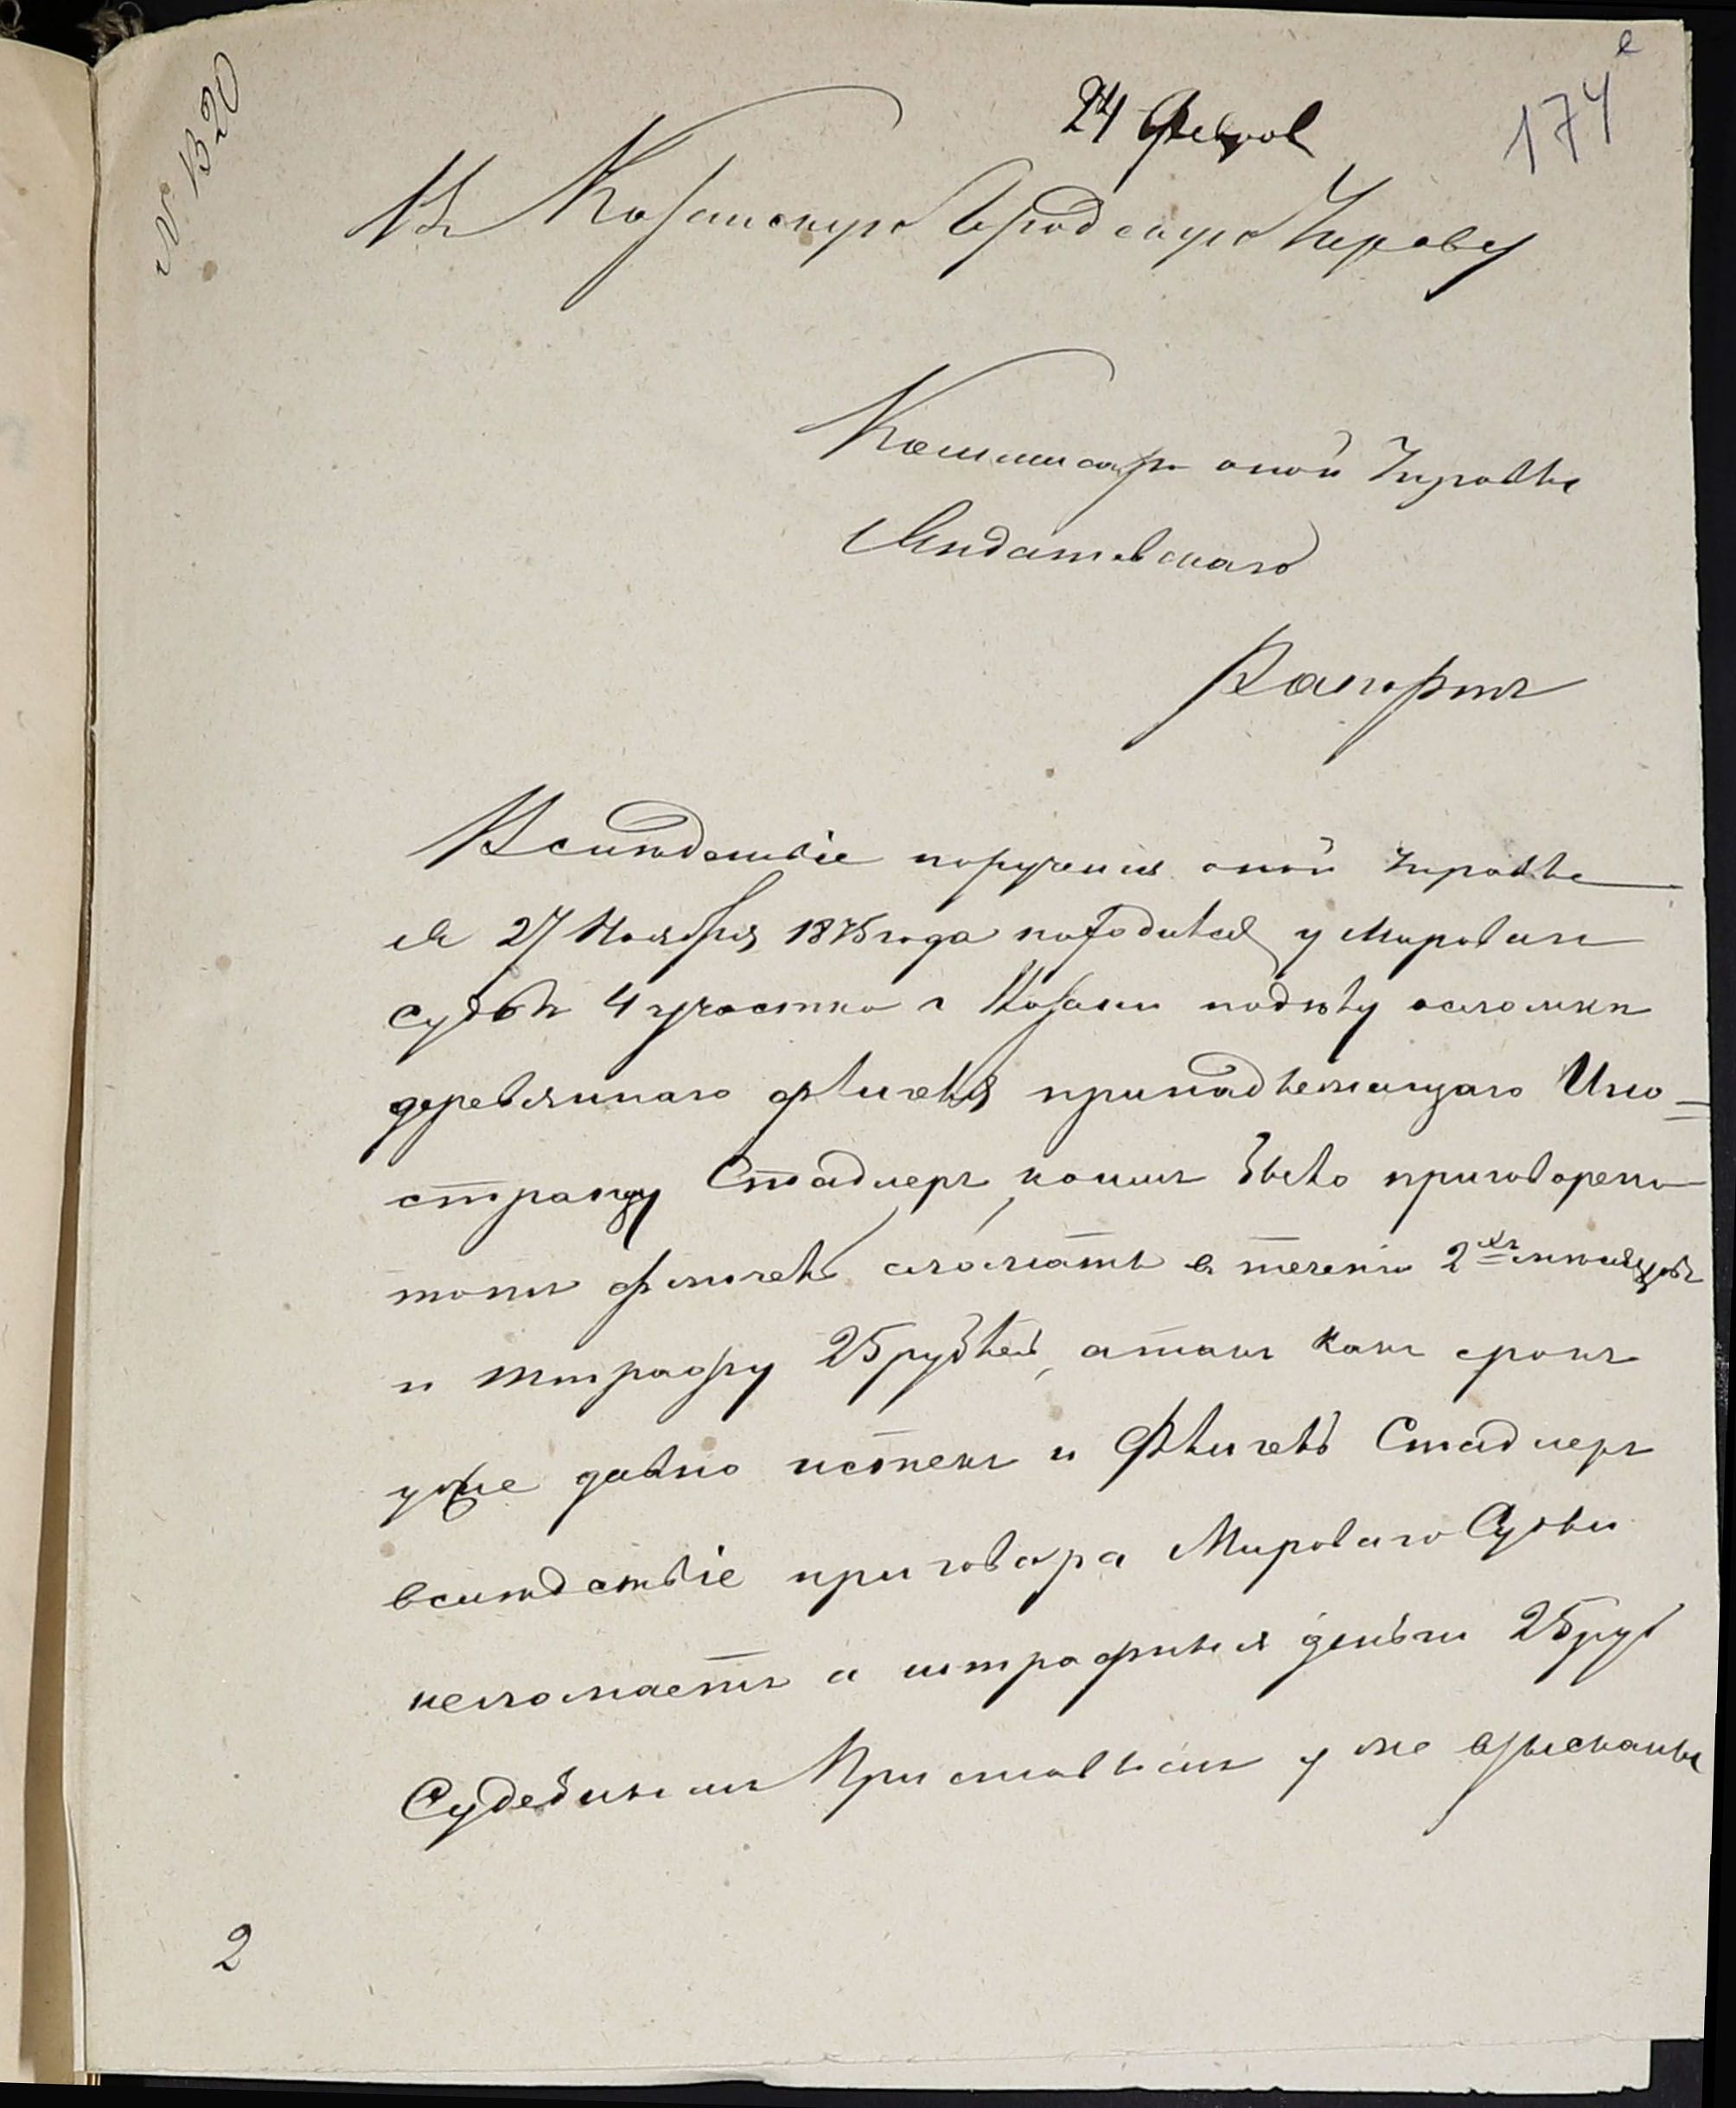 24 Феврал
174
№ 1320
Въ Казанскую Городскую Управу
Коммисара оной Управы
Рапортъ
Вслѣдствіе порученія оной Управы
отъ 27 Ноября 1875 года находился у Мироваго
Судьи 4 участка г Казани по дѣлу о сломкѣ
деревяннаго флигеля принадлежащаго Ино=
странцу Стадлеръ, коимъ было приговорено
тотъ флигель сломать в теченіи 2хъ мѣсяцовъ
и штрафу 25 рублей, а такъ какъ срокъ
уже давно истекъ и Флигель Стадлеръ
вслѣдствіе приговора Мироваго Судьи
неломаетъ а штрафныя деньги 25 руб
Судебнымъ Приставомъ уже взысканы
2